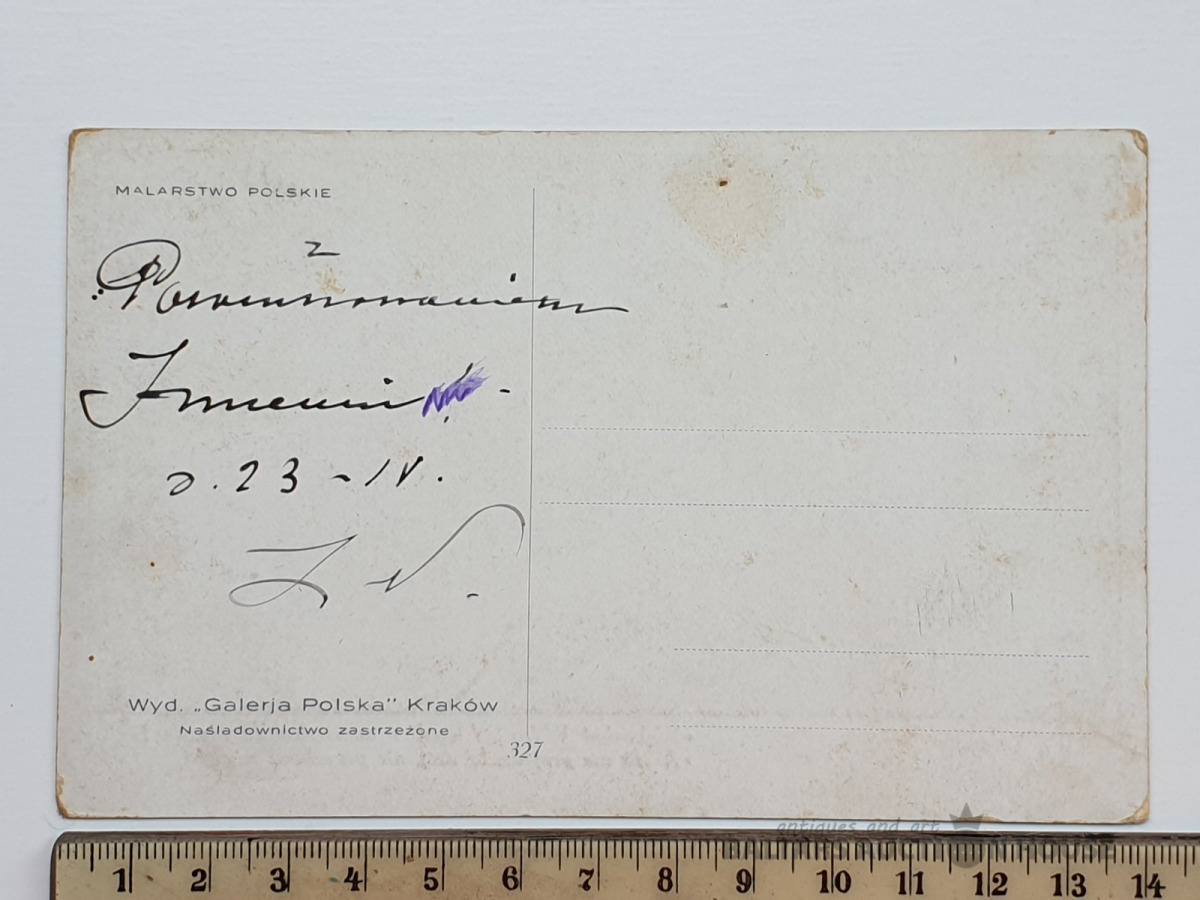 MALARSTWO POLSKIE
z
Powinszowaniem
Imienin
D. 23 - IV.
Wyd. „Galerja Polska" Kraków
Naśladownictwo zastrzeżone
327
antiques and art
1 2 3 4 5 6 7 8 9 10 11 12 13 14